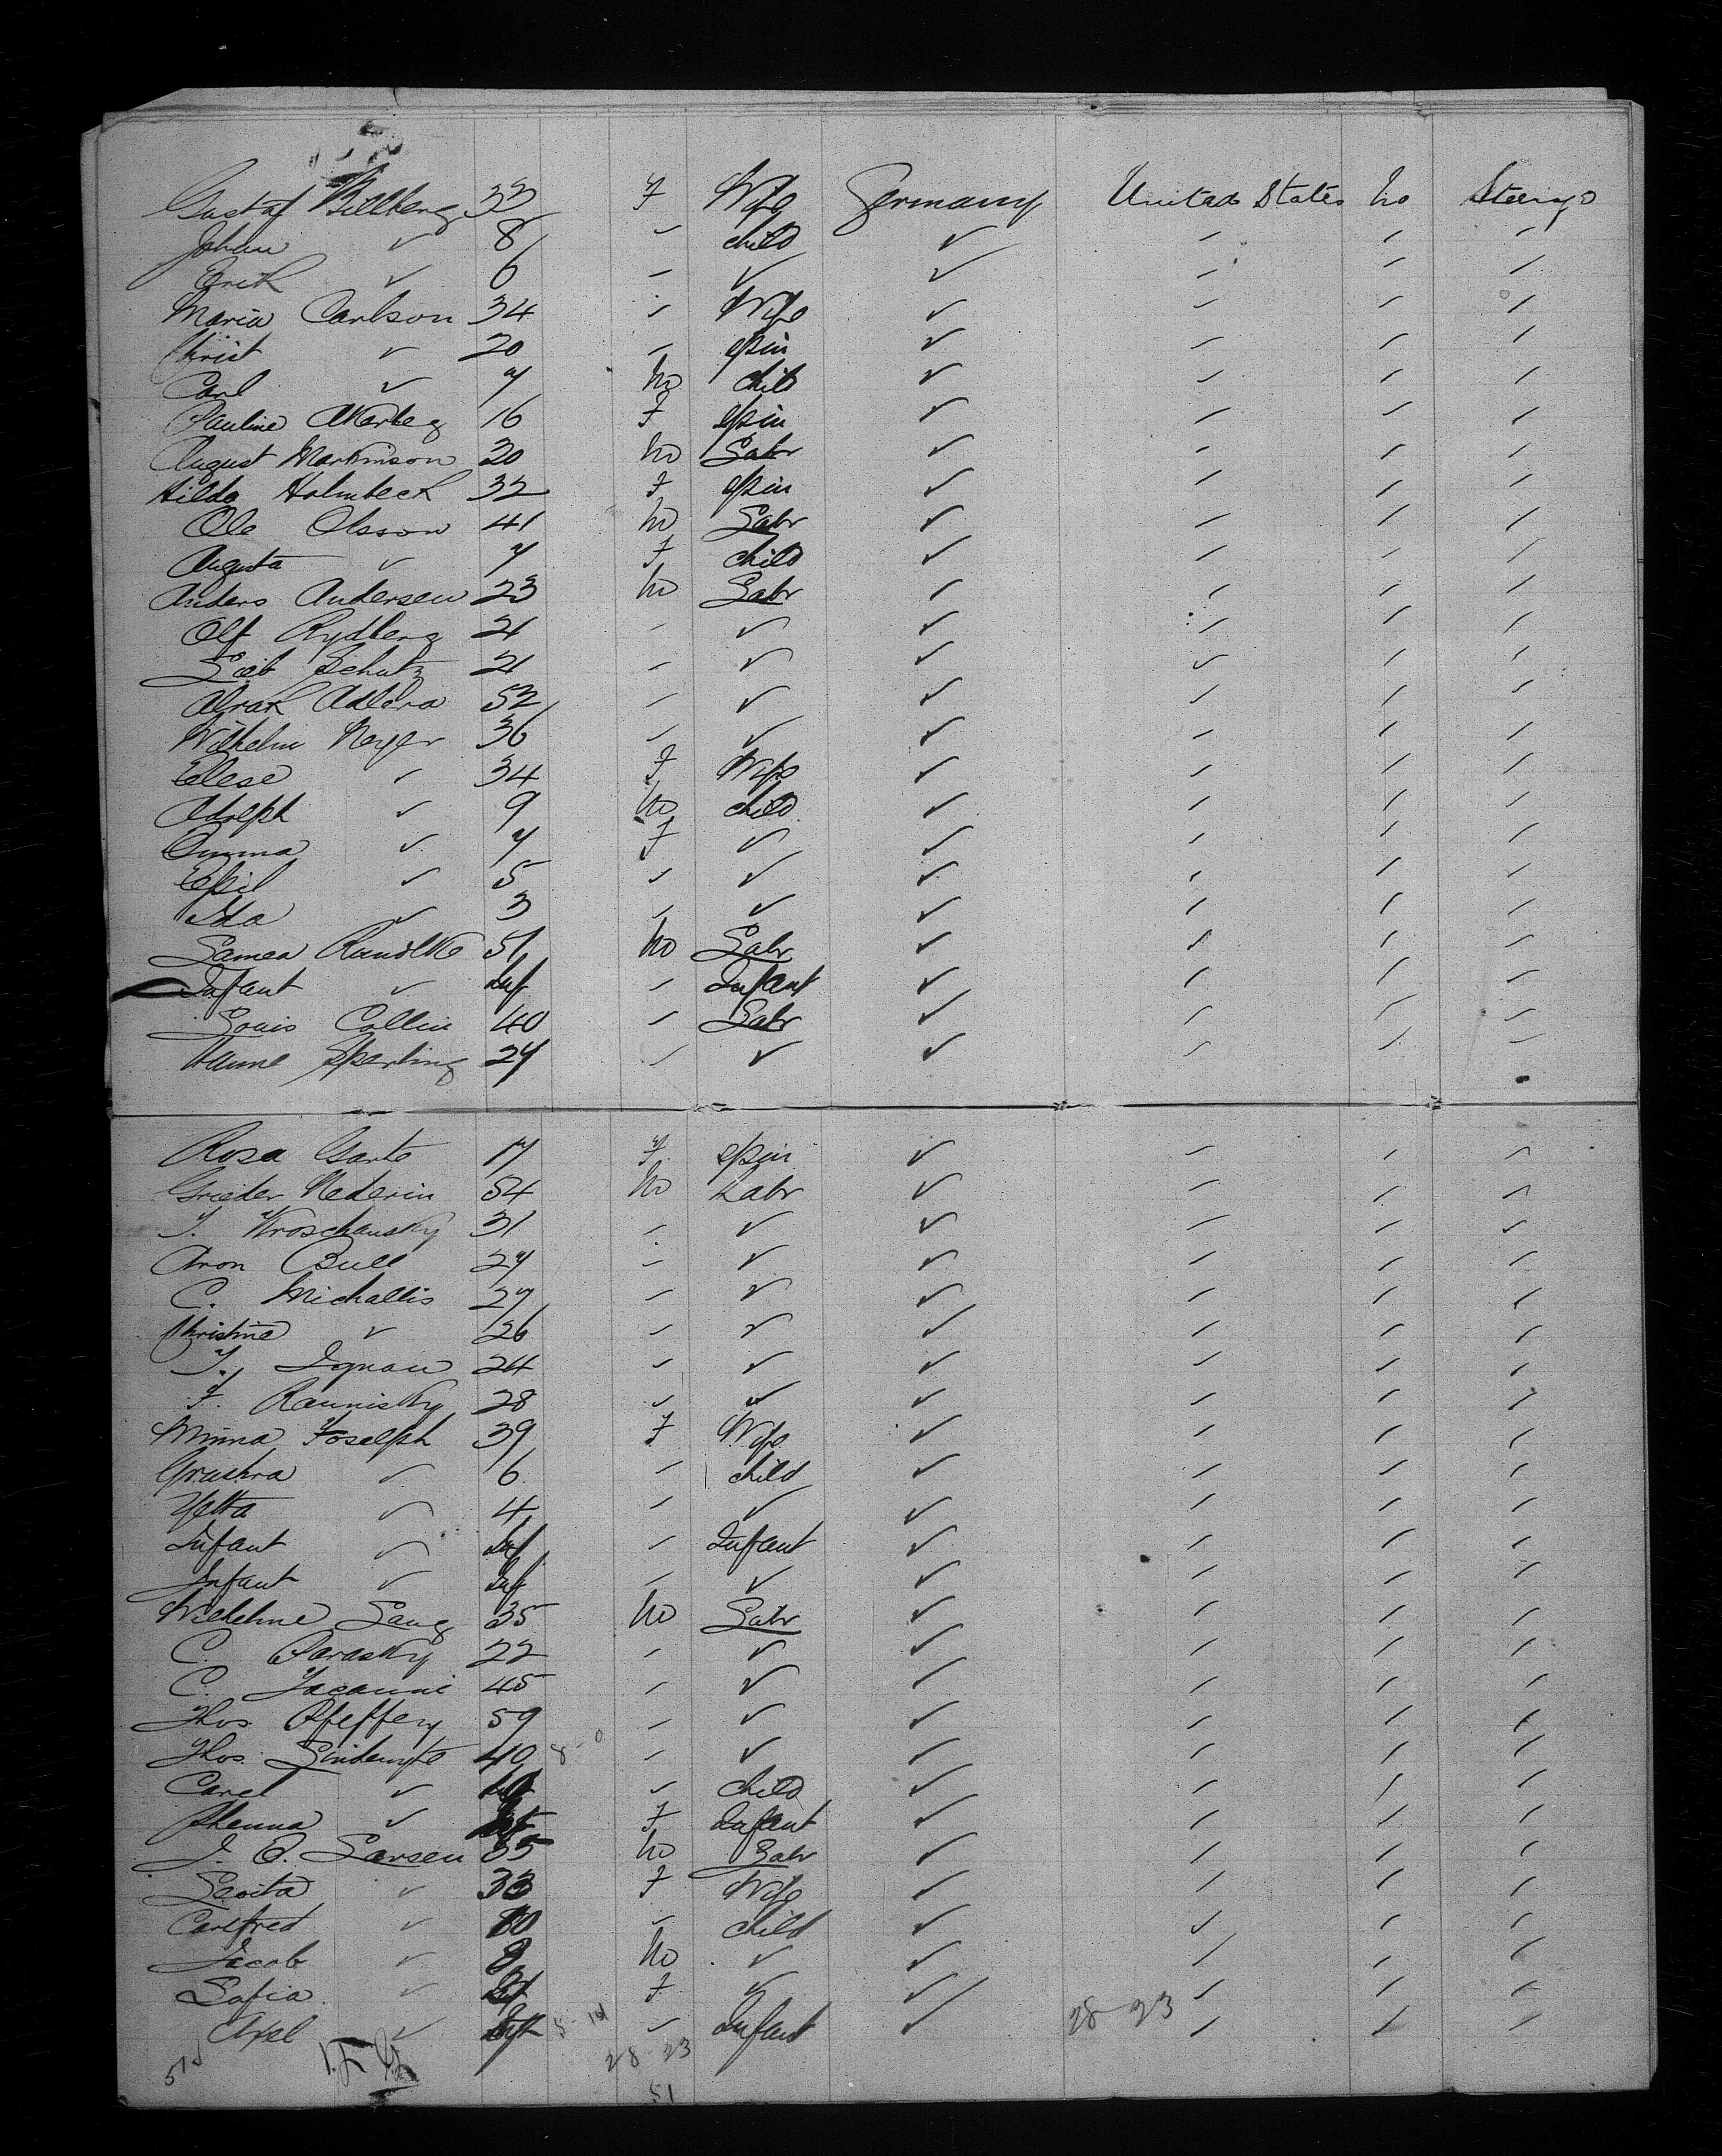 Gustaf Billberg 33 F Wife Germany United States No Steerge
Johan ✓ 8 - child ✓ - - -
Erik ✓ 6 - ✓ ✓ - - -
Maria Carlson 34 - Wife ✓ - - -
Christ ✓ 20 - spin ✓ - - -
Carl ✓ 7 M child ✓ - - -
Pauline Akerberg 16 F spin ✓ - - -
August Markinson 20 M Labr ✓ - - -
Hilda Holmbeck 32 F spin ✓ - - -
Ole Olsson 41 M Labr ✓ - - -
Augusta ✓ 7 F child ✓ - - -
Anders Andersen 23 M Labr - - - -
Olf Rydberg 21 - ✓ ✓ - - -
Schutz 21 - ✓ ✓ - - -
52 - ✓ ✓ - - -
Wilhelm Neyer 36 - ✓ ✓ - - -
Elese ✓ 34 F Wife ✓ - - -
Adolph ✓ 9 M child ✓ - - -
Emma ✓ 7 F ✓ ✓ - - -
✓ 5 - ✓ ✓ - - -
Ida ✓ 3 - ✓ ✓ - - -
51 M Labr ✓ - - -
Infant ✓ Inf - Infant ✓ - - -
Louis Collin 40 - Labr ✓ - - -
Hanne Sperling 27 - ✓ ✓ - - -
Rosa Garte 17 F spin ✓ - - -
Grieder Nederin 54 M Labr ✓ - - -
Kroschansky 31 - ✓ ✓ - - -
Aron Bull 27 - ✓ ✓ - - -
C. Michallis 27 - ✓ ✓ - - -
Christine ✓ 26 - ✓ ✓ - - -
Ignau 24 - ✓ ✓ - - -
F. Raunisky 28 - ✓ ✓ - - -
Minna Foselph 39 F Wife ✓ - - -
✓ 6 - child ✓ - - -
Yetta ✓ 4 - ✓ ✓ - - -
Infant ✓ Inf - Infant ✓ - - -
Infant ✓ Inf - ✓ ✓ - - -
Wilhelme Lang 35 M Labr ✓ - - -
C. Parasky 22 - ✓ ✓ - - -
C. 45 - ✓ ✓ - - -
Thos. Pfeffery 59 - ✓ ✓ - - -
Thos. 40 8-0 - ✓ ✓ - - -
Carel ✓ - child ✓ - - -
✓ F Infant ✓ - - -
J. O. Larsen 35 M Labr ✓ - - -
✓ 33 F Wife ✓ - - -
Carlfred ✓ 10 - child ✓ - - -
Jacob ✓ 8 M ✓ ✓ - - -
Sofia ✓ F ✓ ✓ - - -
Axel ✓ Inf - Infant ✓ 28-23 - - -
28 23
51